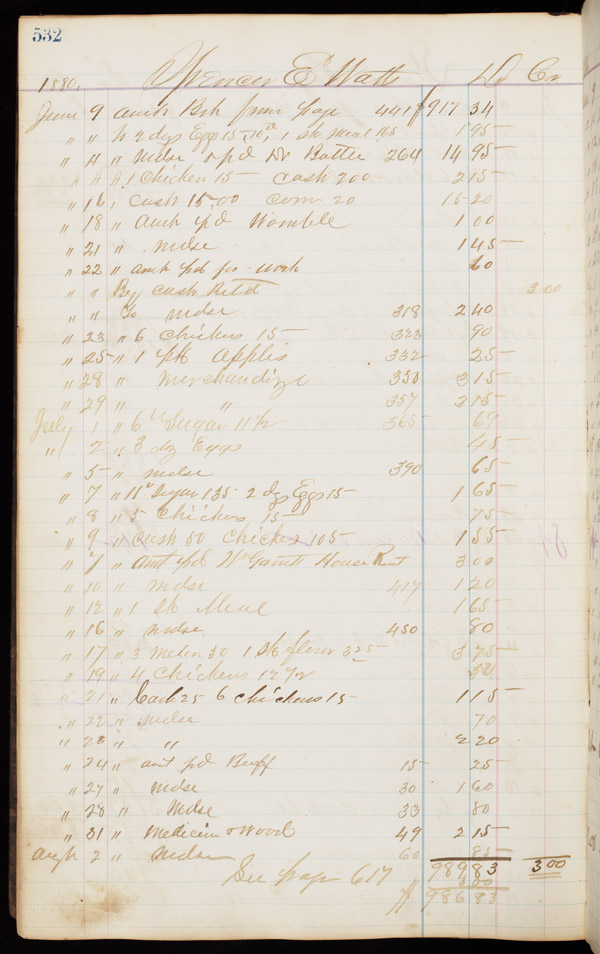 532
1880. Spencer E Watts Dr Cr
June 9 amt Brt from page 441 $917 34
" " to 2 dzs Eggs 15 1 sk meal 165 1 95
" 11 " mdse & pd Dr Battle 264 14 95
" " " 1 chicken 15 cash 200 2 15
" 16 " cash 15.00 corn 20 15 20
" 18 " amt pd Womble 1 00
" 21 " mdse 1 45
" 22 " amt pd for work 60
" " By cash Retd 3 00
" " To mdse 318 2 40
" 23 " 6 chickens 15 323 90
" 25 " 1 pk apples 332 25
" 28 " merchandize 350 3 15
" 29 " " 357 3 15
July 1 " 6 Sugar 11 1/2 365 69
" 2 " 3 dz Eggs 45
" 5 " mdse 390 65
" 7 " 11 Sugar 135 2 dzs Eggs 15 1 65
" 8 " 5 Chickens 15 75
" 9 " cash 50 Chickens 105 1 55
" 9 " amt pd W Garrett House Rent 3 00
" 10 " mdse 417 1 20
" 12 " 1 sk Meal 1 65
" 16 " mdse 450 80
" 17 " 3 melon 50 1 sk flour 325 3 75
" 19 " 4 Chickens 12 1/2
" 21 " Cash 25 6 chickens 15 1 15
" 22 " mdse 70
" 23 " " 2 20
" 24 " amt pd Buff 15 25
" 27 " mdse 30 1 60
" 28 " Mdse 33 80
" 31 " medicine & Wood 49 2 15
Augt 2 " mdse 60 85
See page 617 989 83 3 00
3 00
$ 986 83